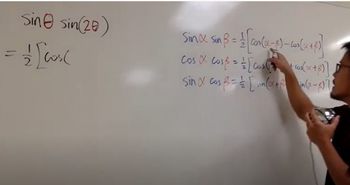 sinθ sin(2θ)
= 1/2 [cos(
sinα sinβ = 1/2 [cos(α-β) - cos(α+β)]
cosα cosβ = 1/2 [cos( + cos(α+β)]
sinα cosβ = 1/2 [sin(α+ sin(α-β)]